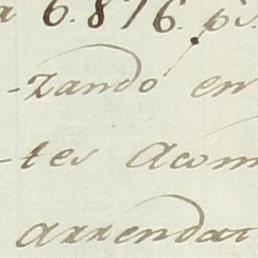 a 6.876. ps.
-zando en
-tes Acom
arrendar